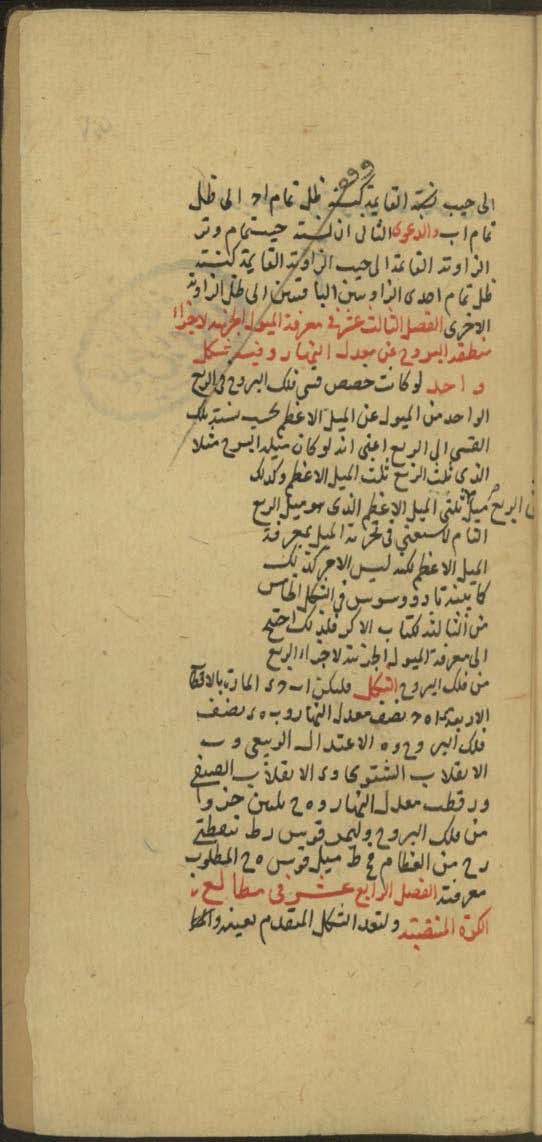 وقف
الى جيب القايمة كنسبة ظل تمام اح الى ظل
تمام اب والدعوى الثانى ان نسبة جيب تمام وتر
الزاوية القايمة الى جيب الزاوية القايمة كنسبة
ظل تمام احدى الزاويتين الباقيتين الى ظل الزاوية
الاخرى الفصل الثالث عشر فى معرفة الميول الجزئية لاجزاء
منطقة البروج عن معدل النهار وفيه شكل
واحد لو كانت حصص قسى فلك البروج فى الربع
الواحد من الميول عن الميل الاعظم بحسب نسبة تلك
القسى الى الربع اعنى انه لو كان ميله البروج مثلا
الذى ثلث الربع ثلث الميل الاعظم وكذلك
ميل ثلثى الميل الاعظم الذى هو ميل الربع
الربع
التام لاستغنى فى تجزئة الميل بمعرفة
الميل الاعظم لكنه ليس الامر كذلك
كما بينه ثاودوسيوس فى الشكل الخامس
من الثالثة لكتاب الاكر فلذلك احتيج
الى معرفة الميول الجزئية لاجزاء الربع
من فلك البروج الشكل فليكن اب ح د المارة بالاقطاب
الاربعة و اه ح نصف معدل النهار و ب ه د نصف
فلك البروج و ه الاعتدال الربيعى و ب
الانقلاب الشتوى و د الانقلاب الصيفى
و ر قطب معدل النهار و ه ح
من فلك البروج وليمر قوس ر ط بنقطتى
ر ح من العظام فح ط ميل قوس ه ح المطلوب
معرفته الفصل الرابع عشر فى مطالع
الكرة المنتصبة ولنعد الشكل المتقدم بعينه